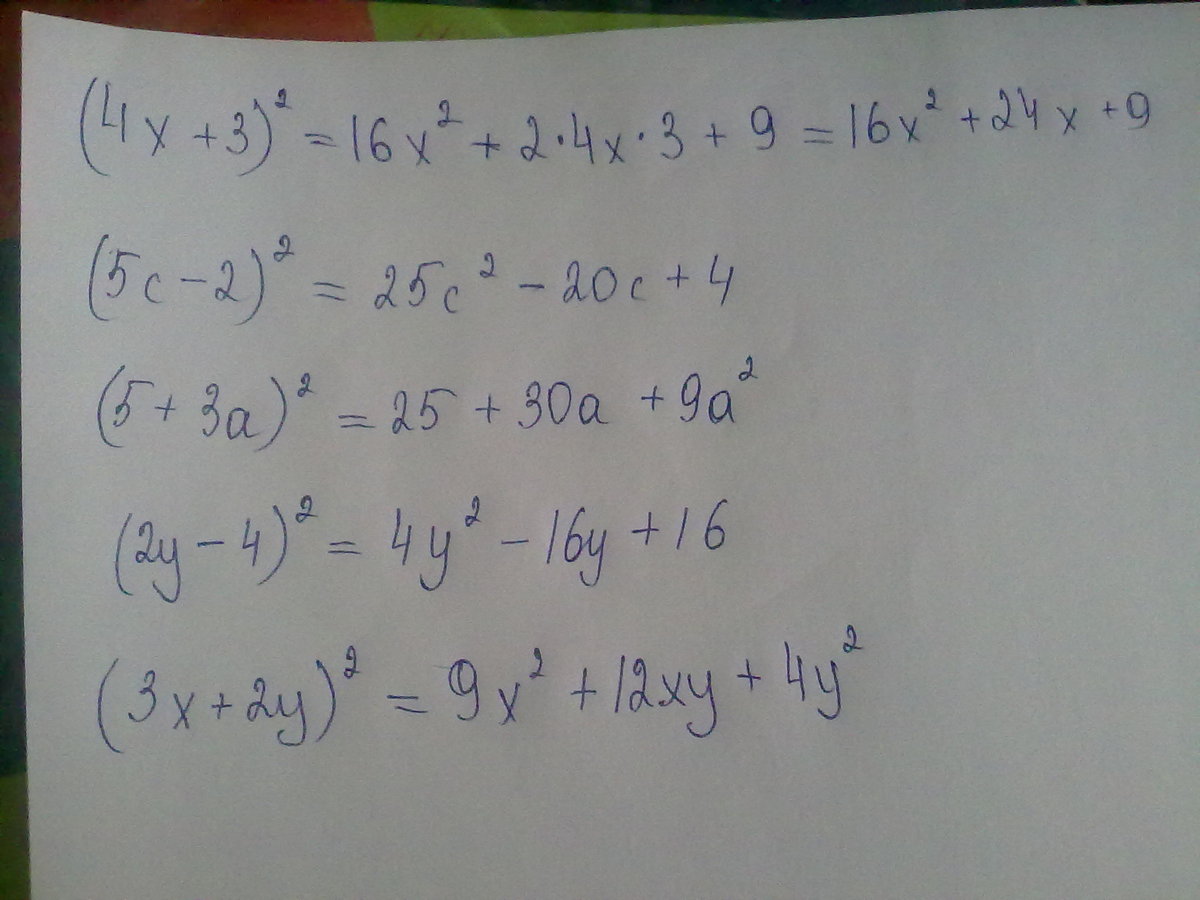 (4x+3)² = 16x² + 2·4x·3 + 9 = 16x² + 24x + 9
(5c-2)² = 25c² - 20c + 4
(5+3a)² = 25 + 30a + 9a²
(2y-4)² = 4y² - 16y + 16
(3x+2y)² = 9x² + 12xy + 4y²